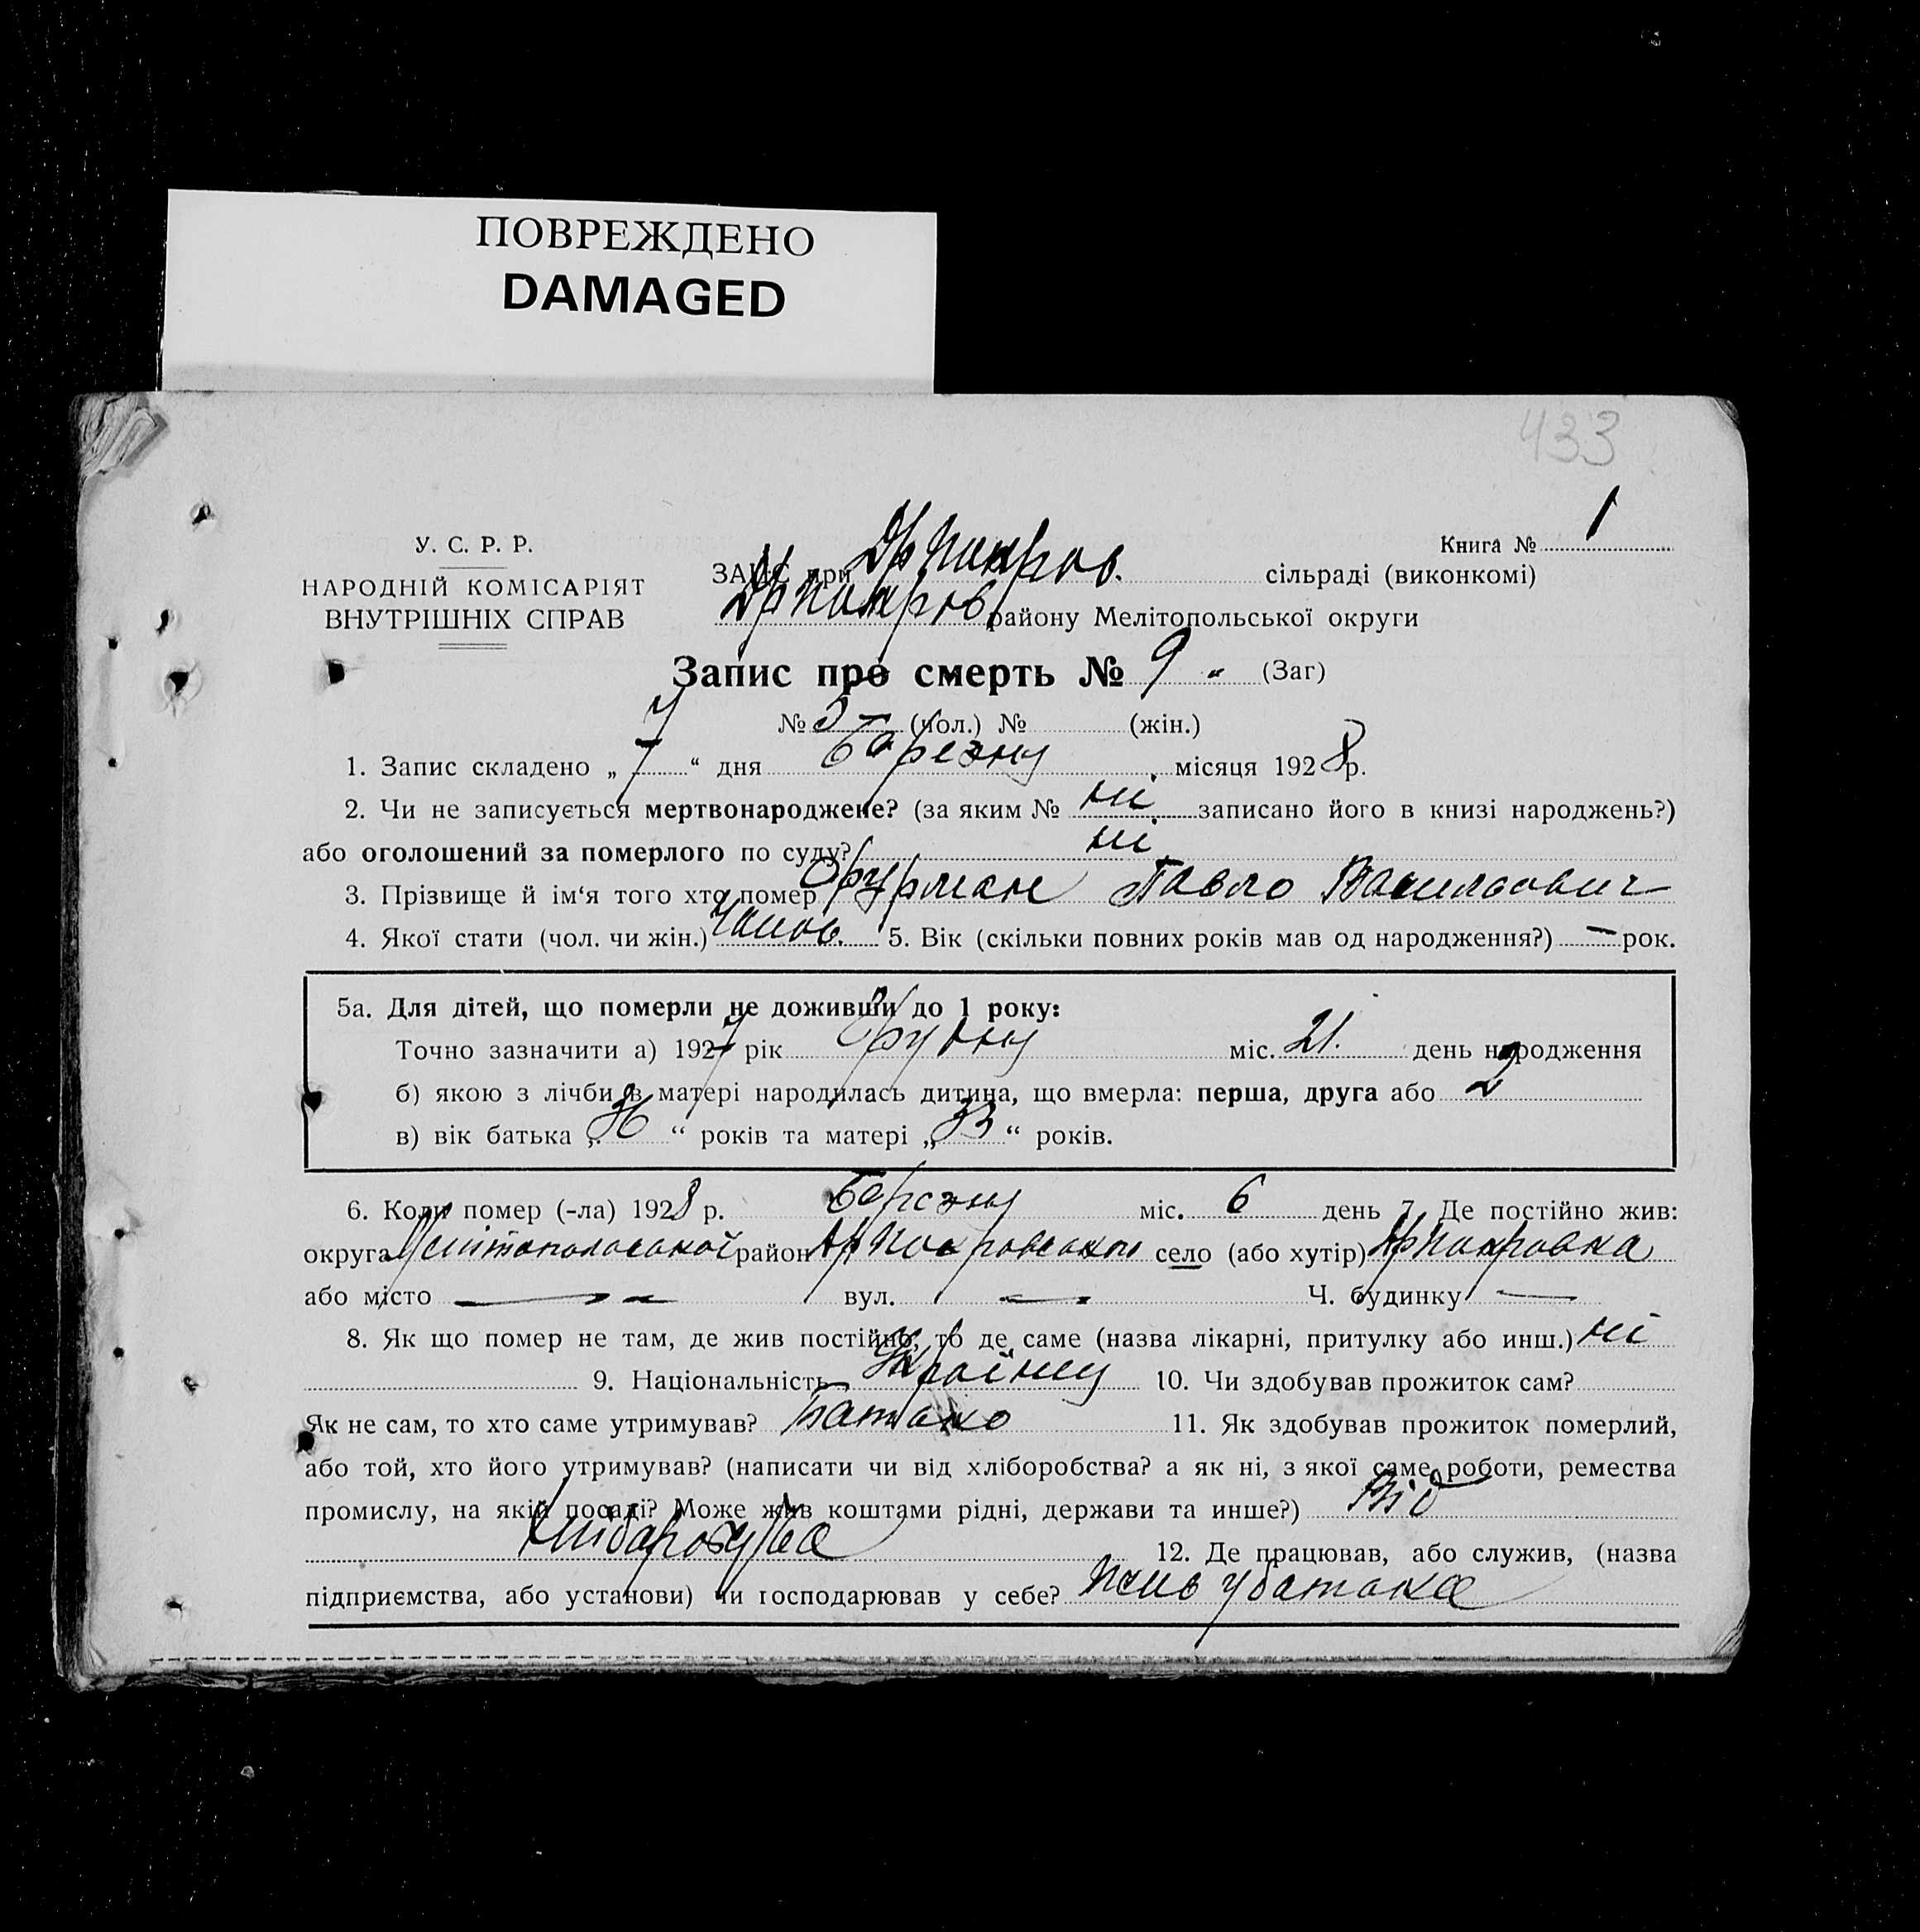 ПОВРЕЖДЕНО
DAMAGED
433
У. С. Р. Р.
НАРОДНІЙ КОМІСАРІЯТ
ВНУТРІШНІХ СПРАВ
Книга № 1
ЗАПИС при Др Покров. сільраді (виконкомі)
Др Покров району Мелітопольської округи
Запис про смерть № 9 „ (Заг)
№ 5 – (чол.) № (жін.)
1. Запис складено „ 7 “ дня березня місяця 1928 р.
2. Чи не записується мертвонароджене? (за яким № ні. записано його в книзі народжень?)
або оголошений за померлого по суду? ні
3. Прізвище й ім‘я того хто помер Фурман Павло Васильович
4. Якої стати (чол. чи жін.) чолов. 5. Вік (скільки повних років мав од народження?) — рок.
5а. Для дітей, що померли не доживши до 1 року:
Точно зазначити а) 1927 рік грудня міс. 21. день народження
б) якою з лічби в матері народилась дитина, що вмерла: перша, друга або 2
в) вік батька „ 36 “ років та матері „ 33 “ років.
6. Коли помер (-ла) 1928 р. Березня міс. 6 день 7. Де постійно жив:
округа Мелітопольської район Др Покровського село (або хутір) Др Покровка
або місто — „ вул. — „ Ч. будинку —
8. Як що помер не там, де жив постійно, то де саме (назва лікарні, притулку або инш.) ні
9. Національність Україн 10. Чи здобував прожиток сам?
Як не сам, то хто саме утримував? батько 11. Як здобував прожиток померлий,
або той, хто його утримував? (написати чи від хліборобства? а як ні, з якої саме роботи, ремества
промислу, на якій посаді? Може жив коштами рідні, держави та инше?) Від
12. Де працював, або служив, (назва
підприємства, або установи) чи господарював у себе? жив у батька